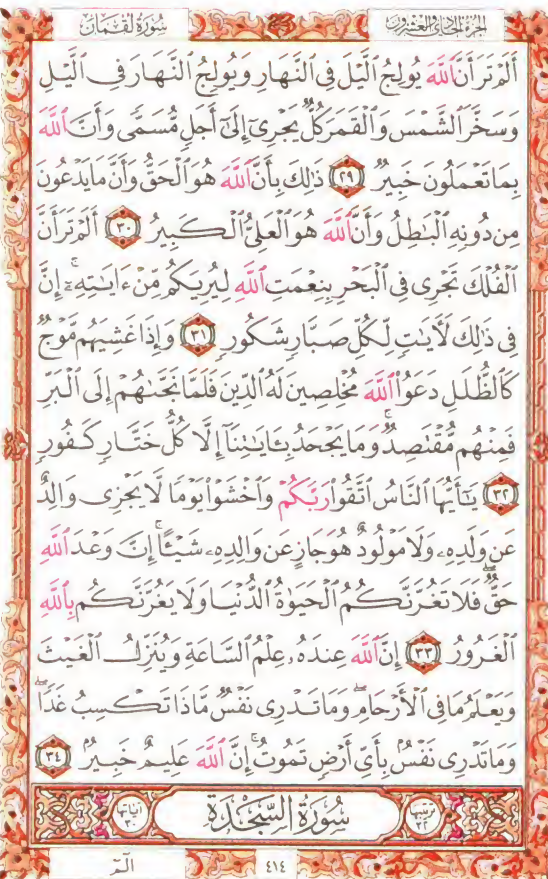 سُورَةُ لُقْمَان
الجزء الحادي والعشرون
أَلَمْ تَرَ أَنَّ ٱللَّهَ يُولِجُ ٱلَّيْلَ فِى ٱلنَّهَارِ وَيُولِجُ ٱلنَّهَارَ فِى ٱلَّيْلِ
وَسَخَّرَ ٱلشَّمْسَ وَٱلْقَمَرَ كُلٌّ يَجْرِىٓ إِلَىٰٓ أَجَلٍ مُّسَمًّى وَأَنَّ ٱللَّهَ
بِمَا تَعْمَلُونَ خَبِيرٌ ٢٩ ذَٰلِكَ بِأَنَّ ٱللَّهَ هُوَ ٱلْحَقُّ وَأَنَّ مَا يَدْعُونَ
مِن دُونِهِ ٱلْبَٰطِلُ وَأَنَّ ٱللَّهَ هُوَ ٱلْعَلِىُّ ٱلْكَبِيرُ ٣٠ أَلَمْ تَرَ أَنَّ
ٱلْفُلْكَ تَجْرِى فِى ٱلْبَحْرِ بِنِعْمَتِ ٱللَّهِ لِيُرِيَكُم مِّنْ ءَايَٰتِهِۦٓ ۚ إِنَّ
فِى ذَٰلِكَ لَءَايَٰتٍ لِّكُلِّ صَبَّارٍ شَكُورٍ ٣١ وَإِذَا غَشِيَهُم مَّوْجٌ
كَٱلظُّلَلِ دَعَوُا۟ ٱللَّهَ مُخْلِصِينَ لَهُ ٱلدِّينَ فَلَمَّا نَجَّىٰهُمْ إِلَى ٱلْبَرِّ
فَمِنْهُم مُّقْتَصِدٌ ۚ وَمَا يَجْحَدُ بِـَٔايَٰتِنَآ إِلَّا كُلُّ خَتَّارٍ كَفُورٍ
٣٢ يَٰٓأَيُّهَا ٱلنَّاسُ ٱتَّقُوا۟ رَبَّكُمْ وَٱخْشَوْا۟ يَوْمًا لَّا يَجْزِى وَالِدٌ
عَن وَلَدِهِۦ وَلَا مَوْلُودٌ هُوَ جَازٍ عَن وَالِدِهِۦ شَيْـًٔا ۚ إِنَّ وَعْدَ ٱللَّهِ
حَقٌّ ۖ فَلَا تَغُرَّنَّكُمُ ٱلْحَيَوٰةُ ٱلدُّنْيَا وَلَا يَغُرَّنَّكُم بِٱللَّهِ
ٱلْغَرُورُ ٣٣ إِنَّ ٱللَّهَ عِندَهُۥ عِلْمُ ٱلسَّاعَةِ وَيُنَزِّلُ ٱلْغَيْثَ
وَيَعْلَمُ مَا فِى ٱلْأَرْحَامِ ۖ وَمَا تَدْرِى نَفْسٌ مَّاذَا تَكْسِبُ غَدًا ۖ
وَمَا تَدْرِى نَفْسٌۢ بِأَىِّ أَرْضٍ تَمُوتُ ۚ إِنَّ ٱللَّهَ عَلِيمٌ خَبِيرٌۢ ٣٤
ترتيبها ٣٢ سُورَةُ السَّجْدَةِ آياتها ٣٠
٤١٤
الٓمٓ